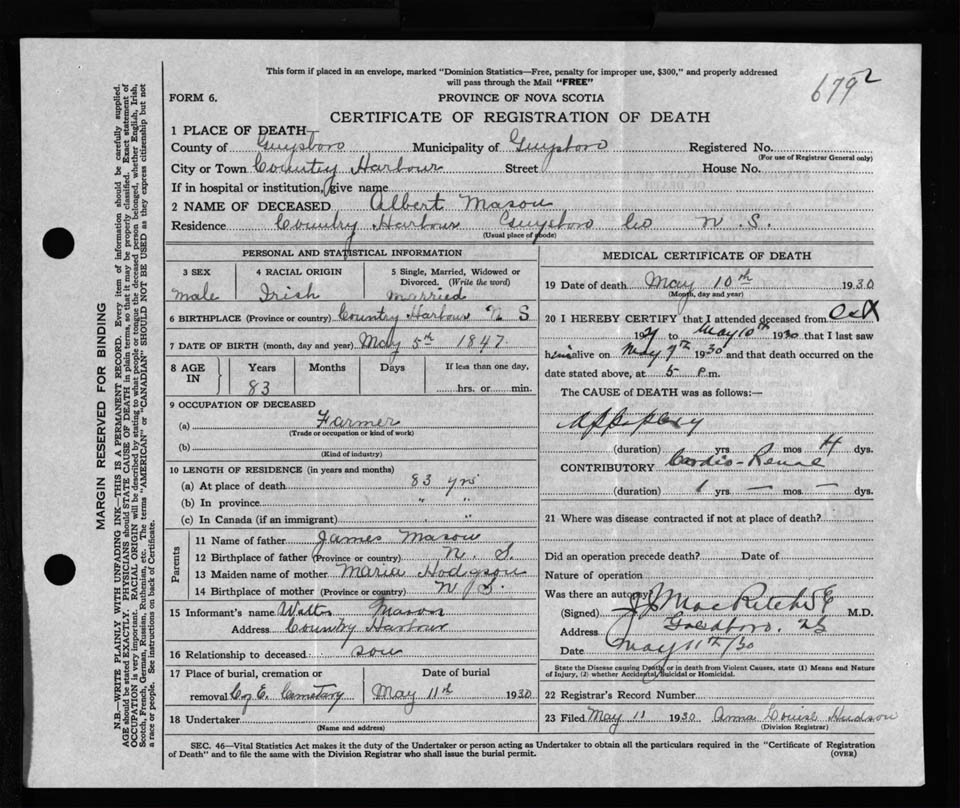 This form if placed in an envelope, marked "Dominion Statistics—Free, penalty for improper use, $300," and properly addressed
will pass through the Mail "FREE"
679 2
FORM 6. PROVINCE OF NOVA SCOTIA
CERTIFICATE OF REGISTRATION OF DEATH
1 PLACE OF DEATH
County of Guysboro Municipality of Guysboro Registered No.
(For use of Registrar General only)
City or Town Country Harbour Street House No.
If in hospital or institution, give name
2 NAME OF DECEASED Albert Mason
Residence Country Harbour Guysboro Co N.S.
(Usual place of abode)
PERSONAL AND STATISTICAL INFORMATION
3 SEX 4 RACIAL ORIGIN 5 Single, Married, Widowed or
Divorced. (Write the word)
male Irish married
6 BIRTHPLACE (Province or country) Country Harbour N S
7 DATE OF BIRTH (month, day and year) May 5th 1847.
8 AGE IN Years Months Days If less than one day,
83 hrs. or min.
9 OCCUPATION OF DECEASED
(a) Farmer
(Trade or occupation or kind of work)
(b)
(Kind of industry)
10 LENGTH OF RESIDENCE (in years and months)
(a) At place of death 83 yrs
(b) In province " "
(c) In Canada (if an immigrant) " "
Parents
11 Name of father James Mason
12 Birthplace of father (Province or country) N. S.
13 Maiden name of mother Maria Hodgson
14 Birthplace of mother (Province or country) N. S.
15 Informant's name Walter Mason
Address Country Harbour
16 Relationship to deceased son
17 Place of burial, cremation or Date of burial
removal C of E. Cemetary May 11th 1930
18 Undertaker
(Name and address)
MEDICAL CERTIFICATE OF DEATH
19 Date of death May 10th 1930
(Month, day and year)
20 I HEREBY CERTIFY that I attended deceased from Oct
1929 to May 10th 1930 that I last saw
him alive on May 9th 1930 and that death occurred on the
date stated above, at 5 P.m.
The CAUSE of DEATH was as follows:—
Apoplexy
(duration) yrs mos 4 dys.
CONTRIBUTORY Cardio-Renal
(duration) 1 yrs — mos — dys.
21 Where was disease contracted if not at place of death?
Did an operation precede death? Date of
Nature of operation
Was there an autopsy
(Signed) J J MacRitchie M.D.
Address Goldboro, NS
Date May 11th/30
State the Disease causing Death, or in death from Violent Causes, state (1) Means and Nature
of Injury, (2) whether Accidental, Suicidal or Homicidal.
22 Registrar's Record Number
23 Filed May 11 1930 Anna Louise Hudson
(Division Registrar)
SEC. 46—Vital Statistics Act makes it the duty of the Undertaker or person acting as Undertaker to obtain all the particulars required in the "Certificate of Registration
of Death" and to file the same with the Division Registrar who shall issue the burial permit. (OVER)
MARGIN RESERVED FOR BINDING
N.B.—WRITE PLAINLY WITH UNFADING INK—THIS IS A PERMANENT RECORD. Every item of information should be carefully supplied.
AGE should be stated EXACTLY. PHYSICIANS should STATE CAUSE OF DEATH in plain terms, so that it may be properly classified. Exact statement of
OCCUPATION is very important. RACIAL ORIGIN will be described by stating to what people or tongue the deceased person belonged, whether English, Irish,
Scotch, French, German, Russian, Ruthenian, etc. The terms "AMERICAN" or "CANADIAN" SHOULD NOT BE USED as they express citizenship but not
a race or people. See instructions on back of Certificate.